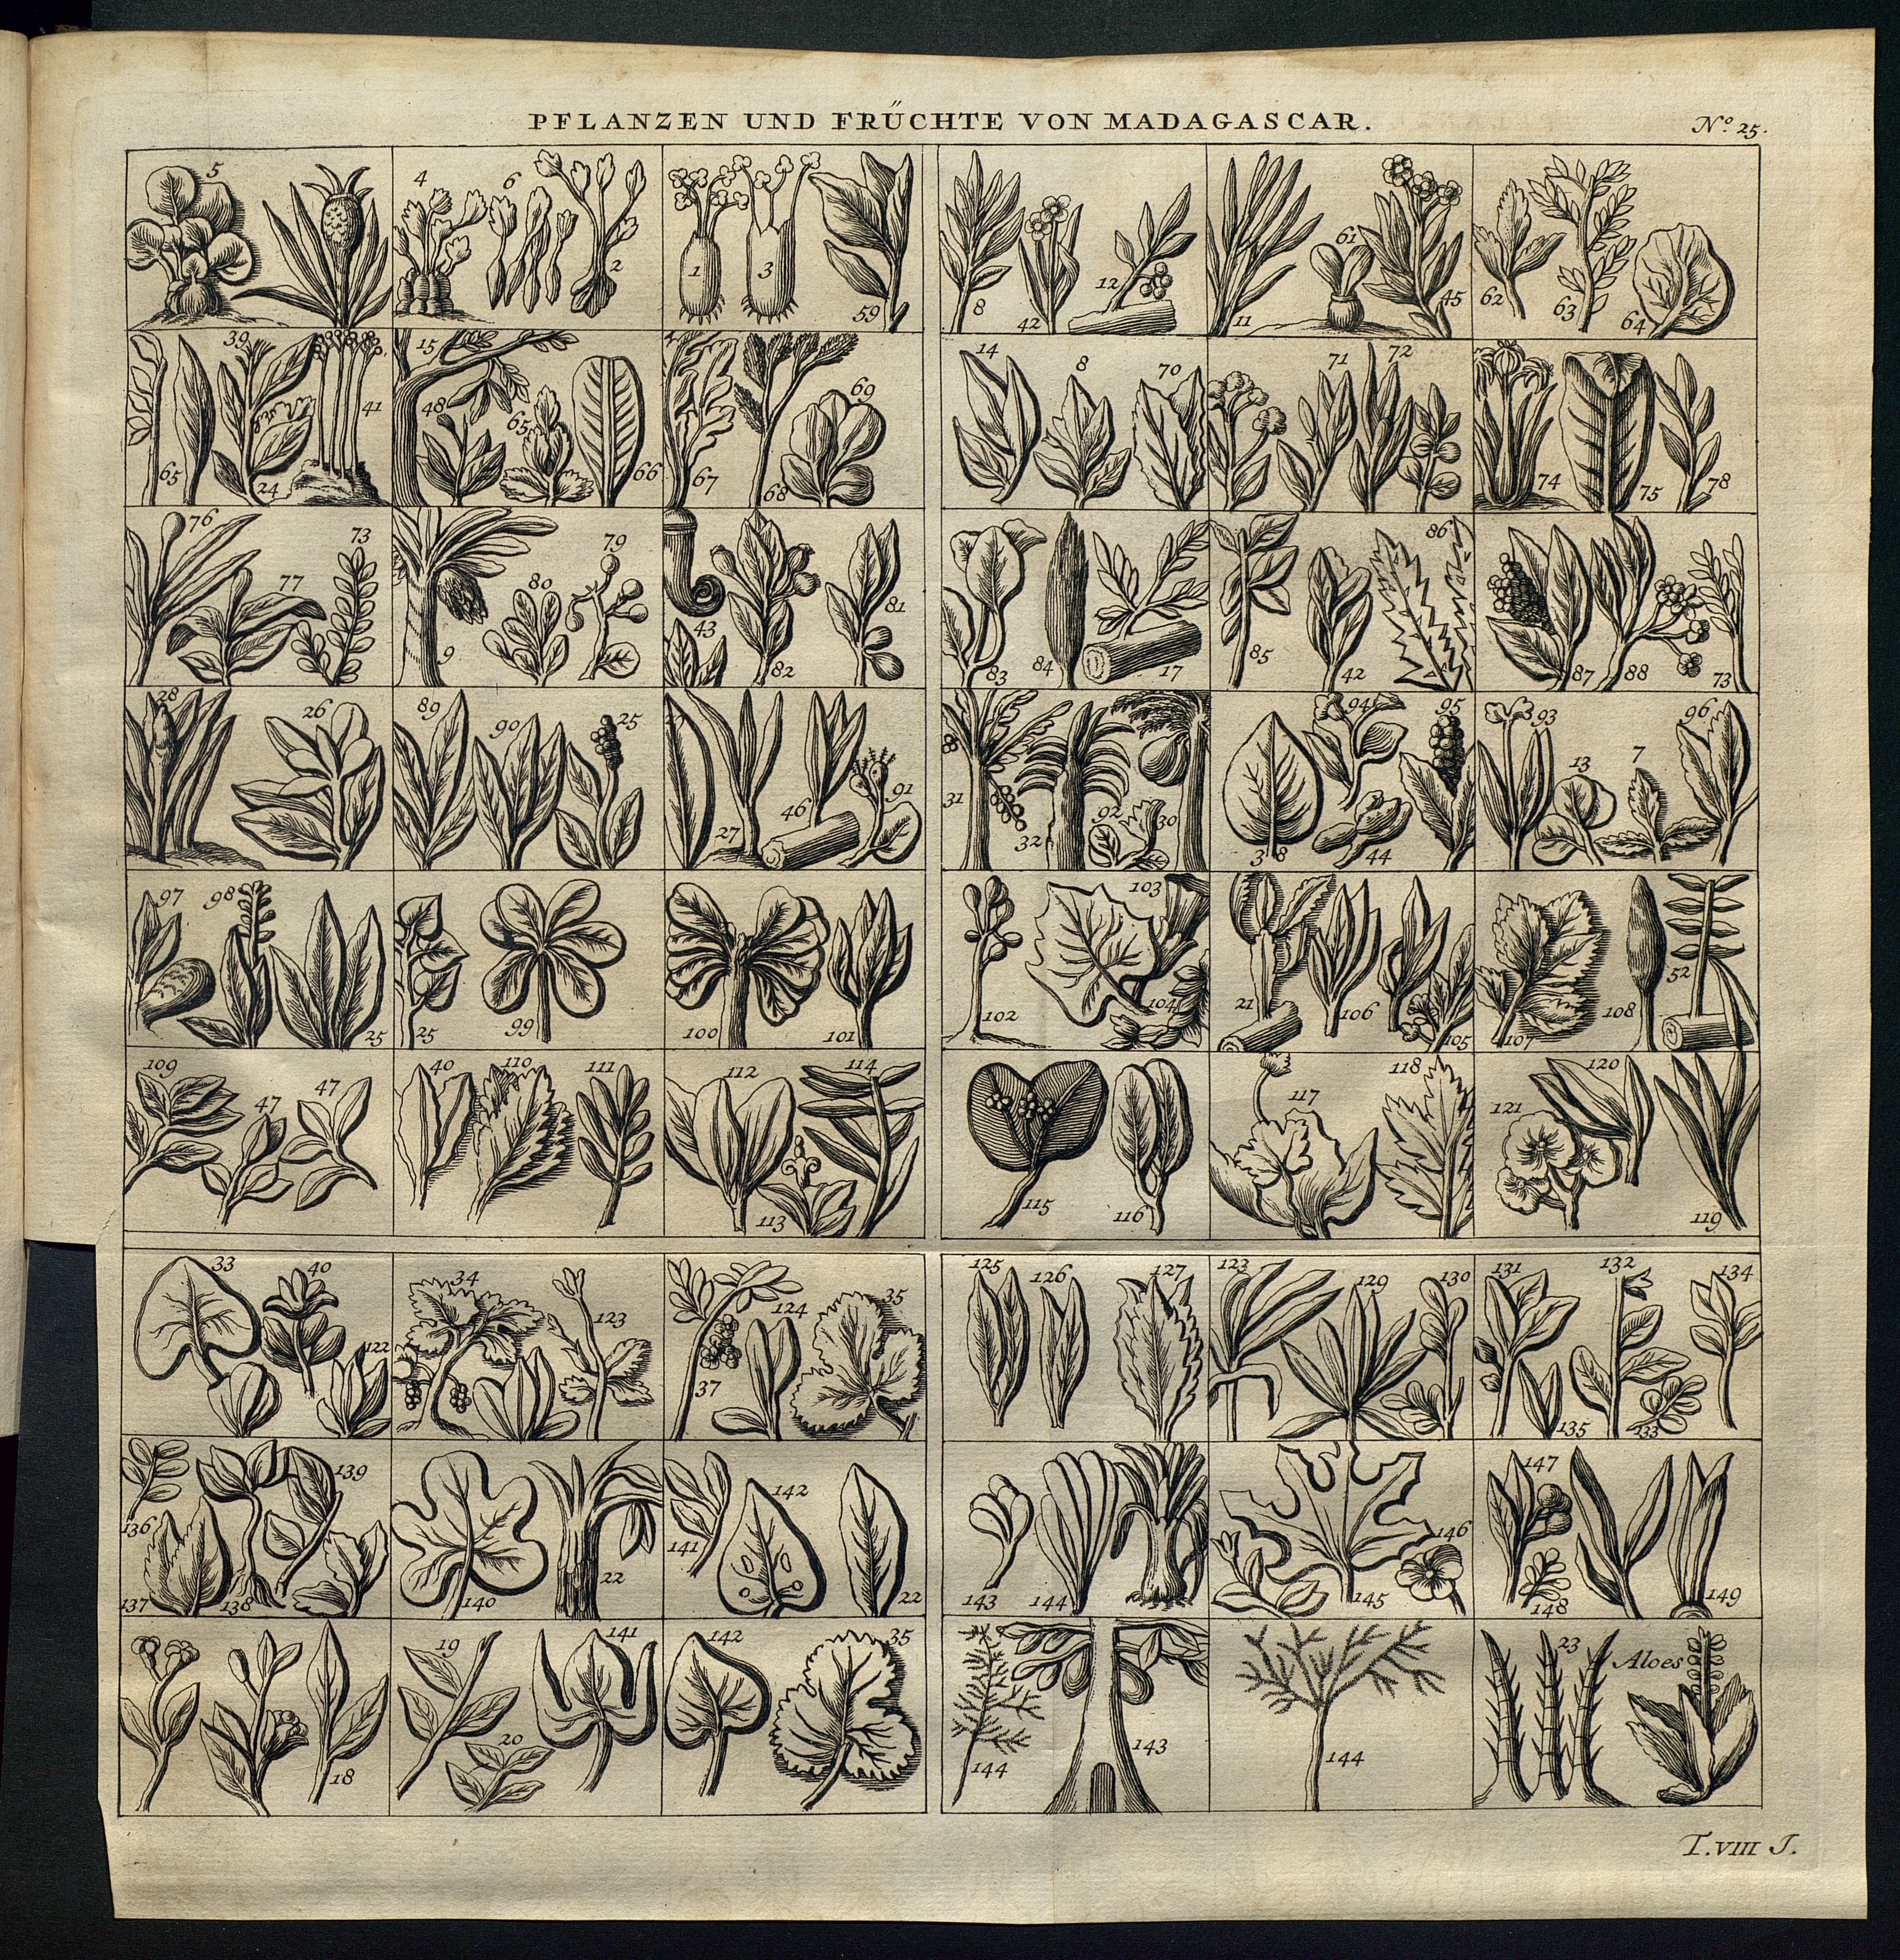 PFLANZEN UND FRÜCHTE VON MADAGASCAR.
Nº. 25.
5
4 6 2
1 3 59
8 42 12
11 61 45
62 63 64
65 39 24 41
15 48 65 66
67 68 69
14 8 70
71 72
74 75 78
76 77 73
9 80 79
43 82 81
83 84 17
85 42 86
87 88 73
28 26
89 90 25
27 46 91
31 32 92 30
38 94 44 95
93 13 7 96
97 98 25
25 99
100 101
102 103 104
21 106 105
107 108 52
109 47 47
40 110 111
112 113 114
115 116
117 118
121 120 119
33 40 122
34 123
37 124 35
125 126 127
123 129 130
131 135 132 133 134
136 137 138 139
140 22
141 142 22
143 144
145 146
147 148 149
18
19 20 141
142 35
144 143
144
23 Aloes
T. VIII J.